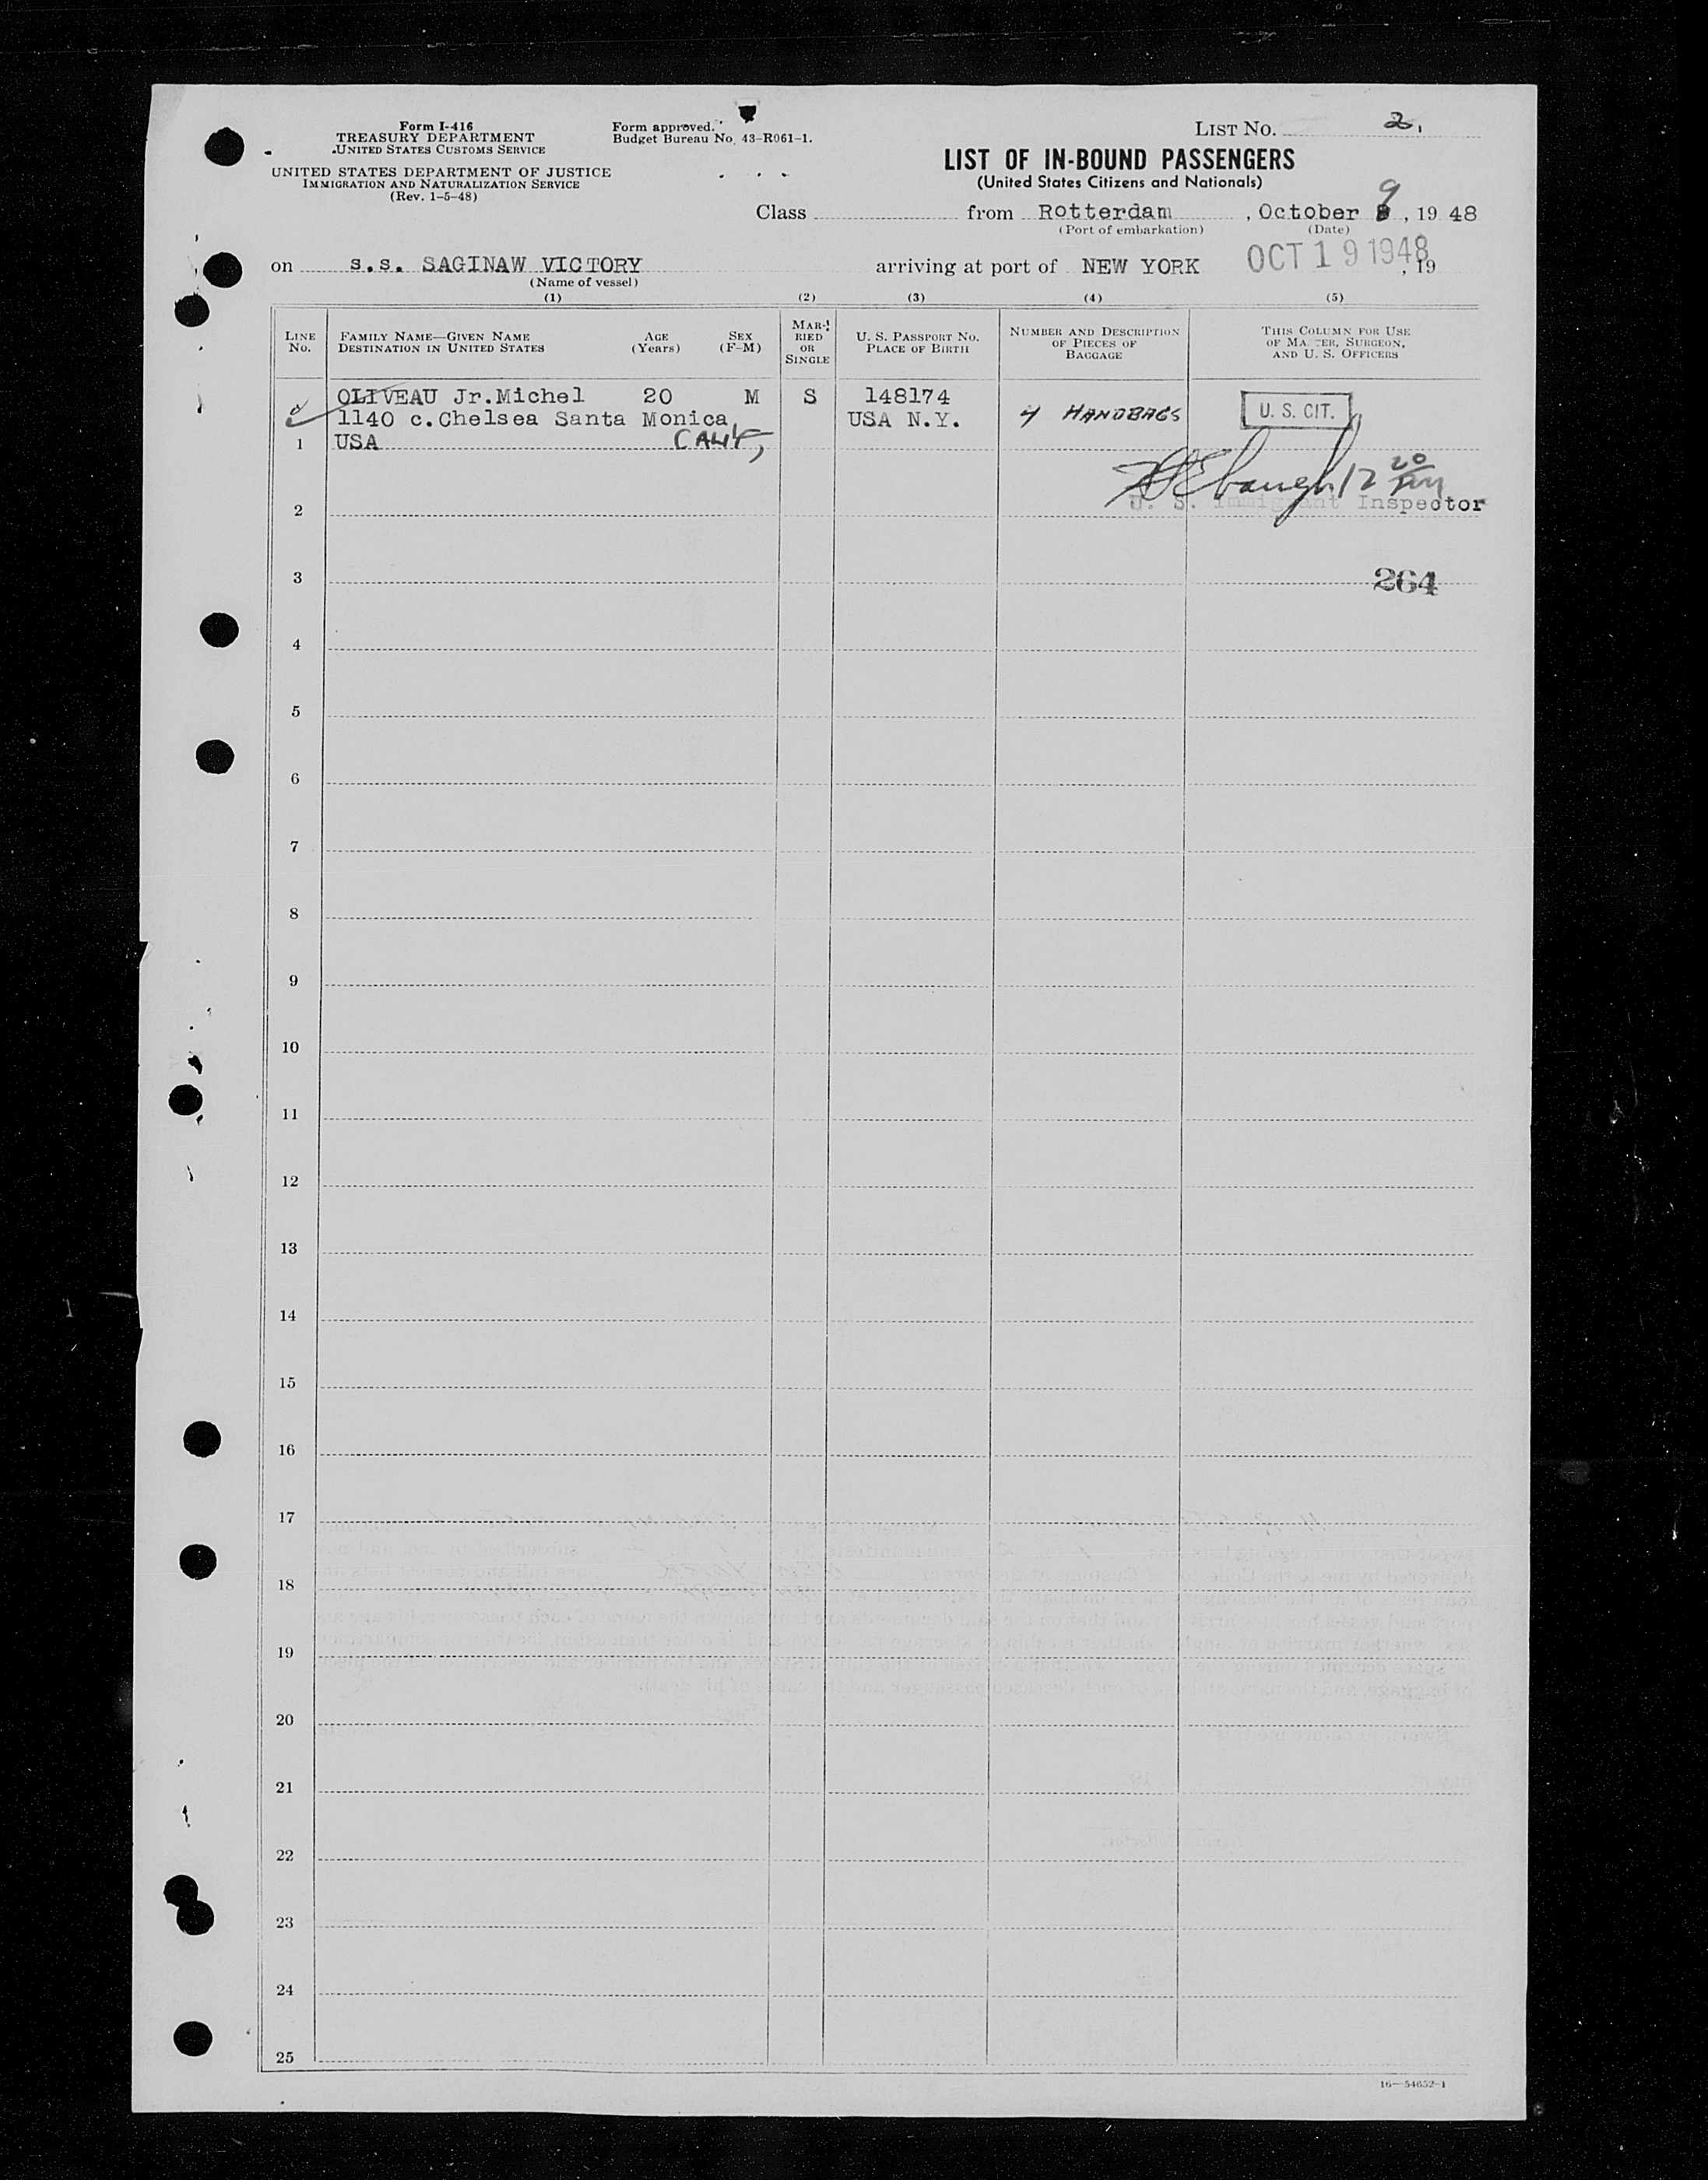 Form I-416
TREASURY DEPARTMENT
UNITED STATES CUSTOMS SERVICE
UNITED STATES DEPARTMENT OF JUSTICE
IMMIGRATION AND NATURALIZATION SERVICE
(Rev. 1-5-48)
Form approved.
Budget Bureau No. 43-R061-1.
LIST NO. 2,
LIST OF IN-BOUND PASSENGERS
(United States Citizens and Nationals)
Class from Rotterdam , October 9 , 19 48
(Port of embarkation) (Date)
on s.s. SAGINAW VICTORY arriving at port of NEW YORK OCT 19 1948 , 19
(Name of vessel)
(1) (2) (3) (4) (5)
LINE NO.
FAMILY NAME—GIVEN NAME
DESTINATION IN UNITED STATES
AGE (Years)
SEX (F-M)
MAR-RIED OR SINGLE
U. S. PASSPORT NO.
PLACE OF BIRTH
NUMBER AND DESCRIPTION OF PIECES OF BAGGAGE
THIS COLUMN FOR USE OF MASTER, SURGEON, AND U. S. OFFICERS
OLIVEAU Jr.Michel 20 M S 148174
1140 c.Chelsea Santa Monica USA N.Y. 4 HANDBAGS U. S. CIT.
1 USA CALIF,
12 20 PM
U. S. Immigrant Inspector
2
3 264
4
5
6
7
8
9
10
11
12
13
14
15
16
17
18
19
20
21
22
23
24
25
16—54652-1